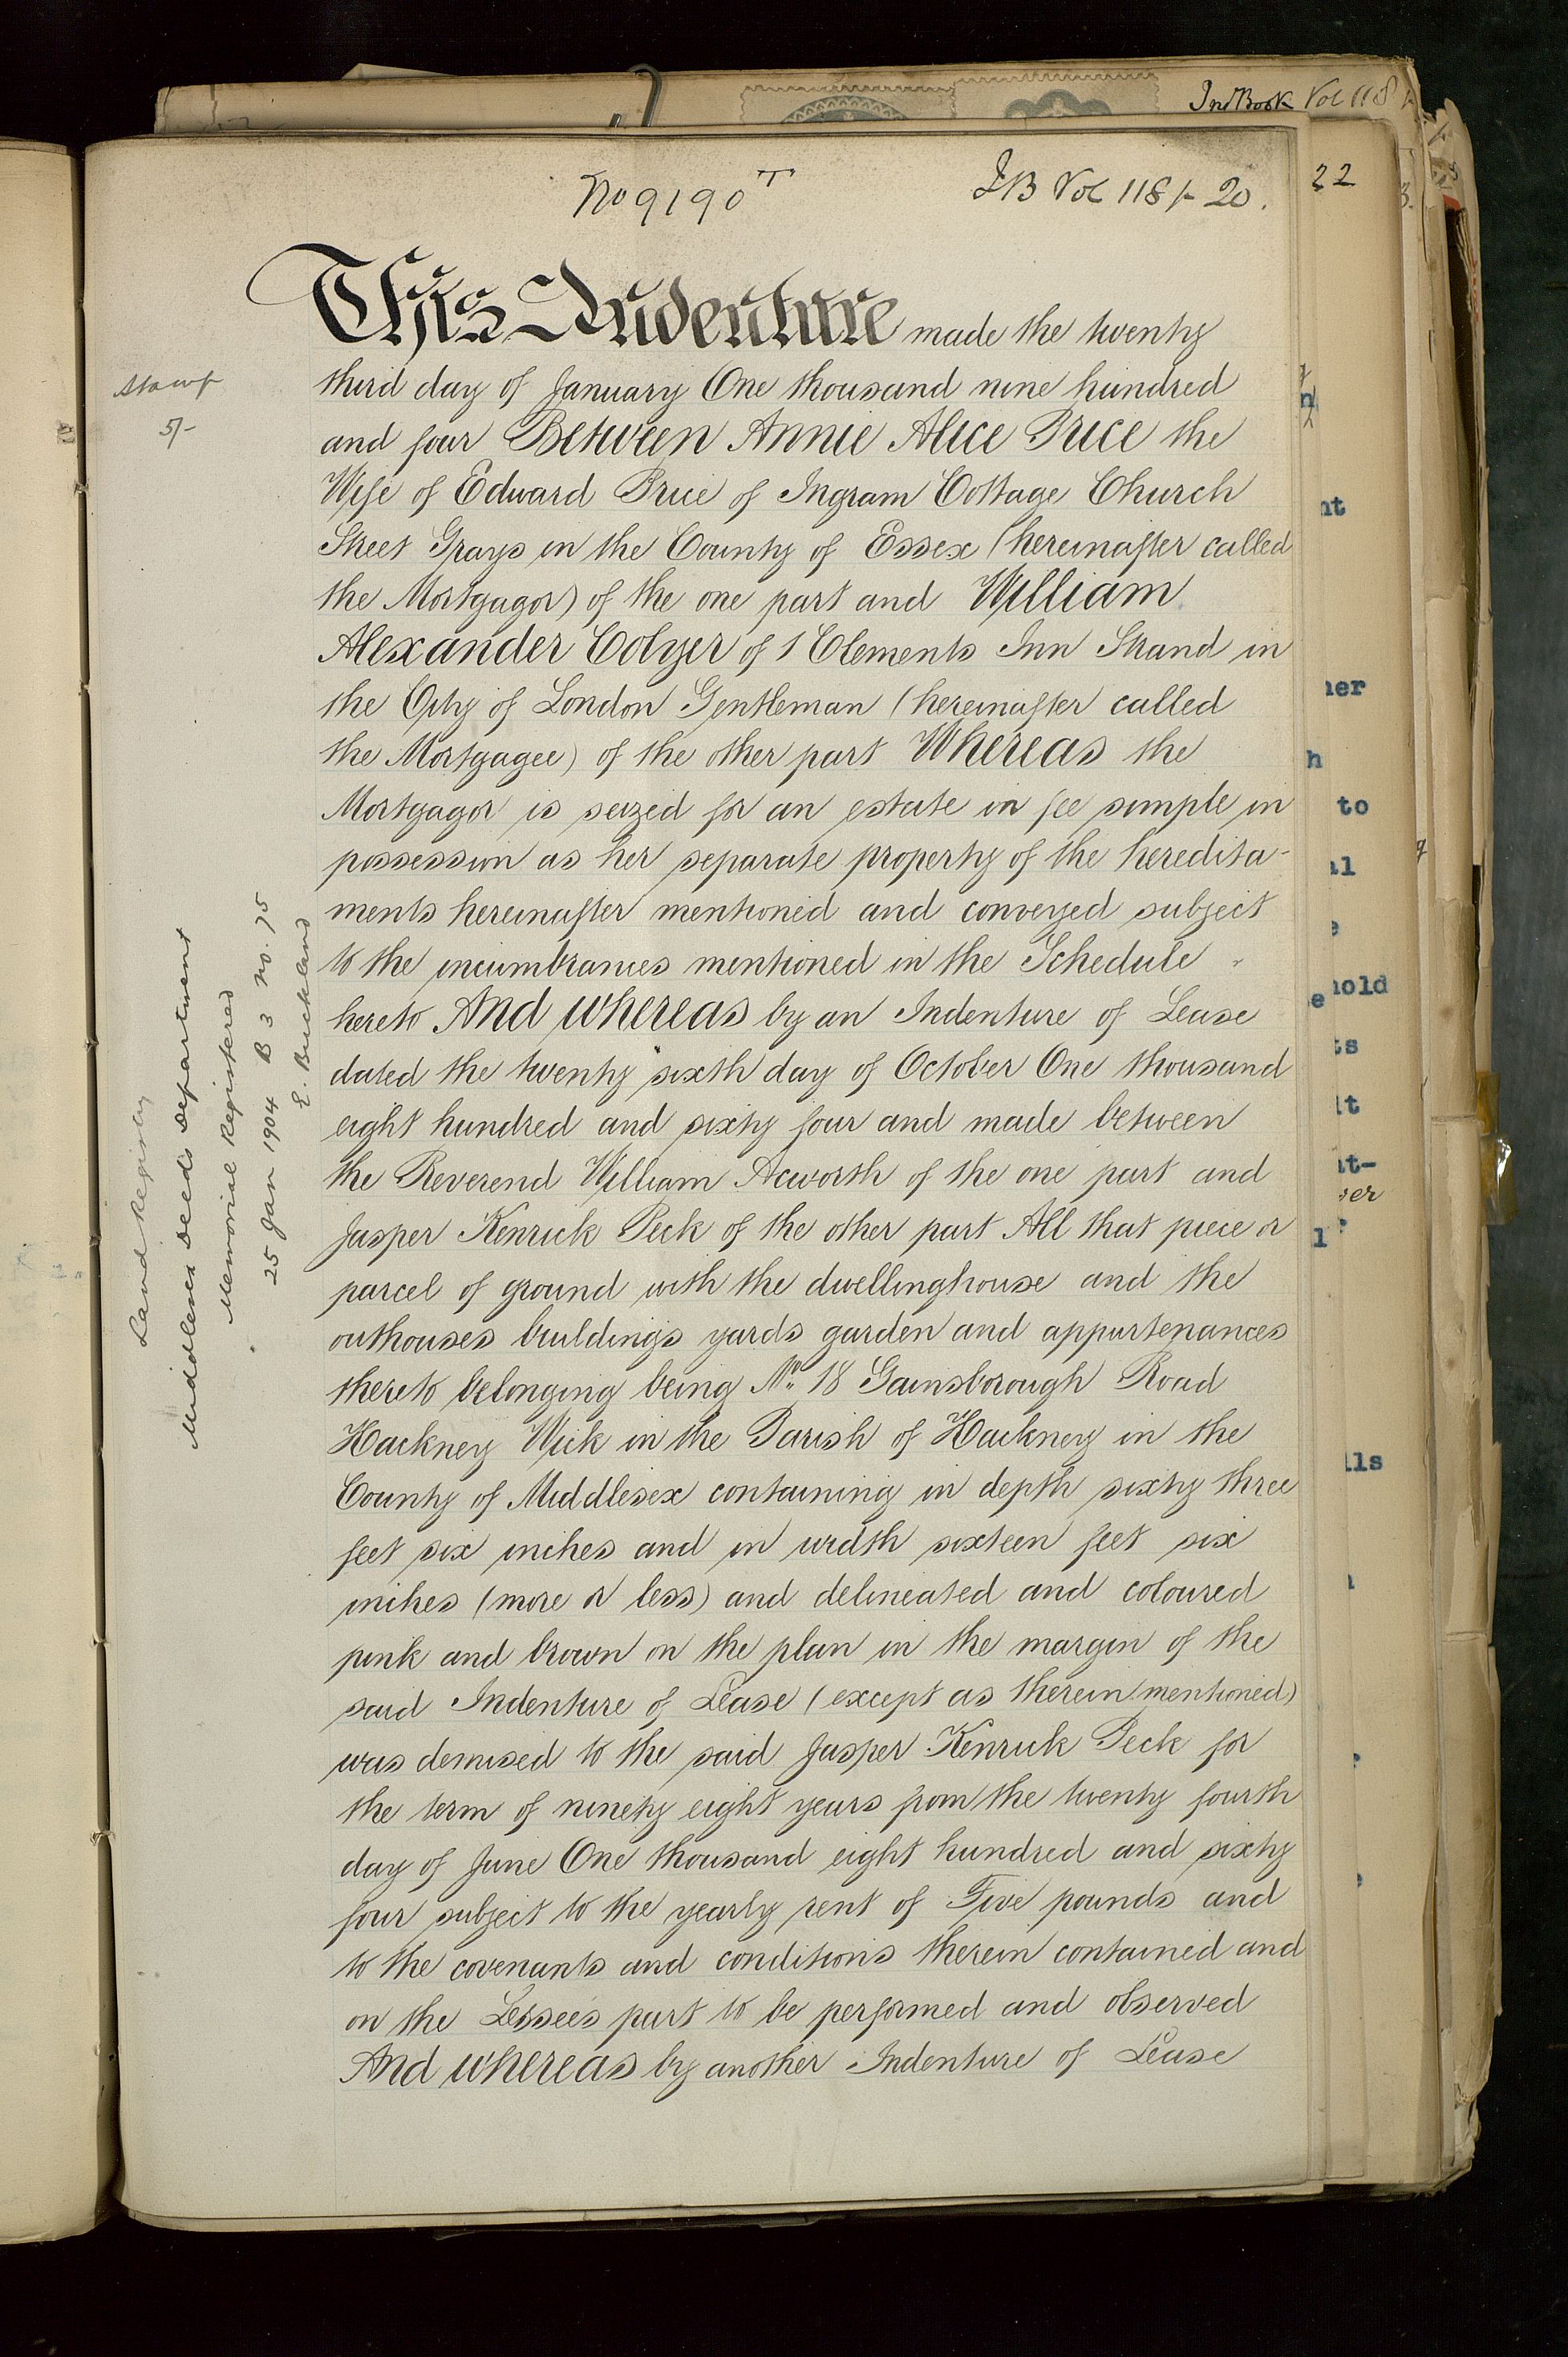 IndBook Vol 118
No 9190 T
IB Vol 118/- 20.
22
Stamp
5/-
This Indenture made the twenty
third day of January One thousand nine hundred
and four Between Annie Alice Price the
Wife of Edward Price of Ingram Cottage Church
Street Grays in the County of Essex (hereinafter called
the Mortgagor) of the one part and William
Alexander Colyer of 1 Clements Inn Strand in
the City of London Gentleman (hereinafter called
the Mortgagee) of the other part Whereas the
Mortgagor is seized for an estate in fee simple in
possession as her separate property of the heredita-
ments hereinafter mentioned and conveyed subject
to the incumbrances mentioned in the Schedule
hereto And whereas by an Indenture of Lease
dated the twenty sixth day of October One thousand
eight hundred and sixty four and made between
the Reverend William Acworth of the one part and
Jasper Kenrick Peck of the other part All that piece or
parcel of ground with the dwellinghouse and the
outhouses buildings yards garden and appurtenances
thereto belonging being No. 18 Gainsborough Road
Hackney Wick in the Parish of Hackney in the
County of Middlesex containing in depth sixty three
feet six inches and in width sixteen feet six
inches (more or less) and delineated and coloured
pink and brown on the plan in the margin of the
said Indenture of Lease (except as therein mentioned)
was demised to the said Jasper Kenrick Peck for
the term of ninety eight years from the twenty fourth
day of June One thousand eight hundred and sixty
four subject to the yearly rent of Five pounds and
to the covenants and conditions therein contained and
on the Lessees part to be performed and observed
And whereas by another Indenture of Lease
Land Registry
Middlesex Deeds Department
Memorial Registered
25 Jan 1904 B 3 No. 75
E. Buckland
nt
her
h
to
al
e
hold
e
ts
lt
nt-
ser
l
lls